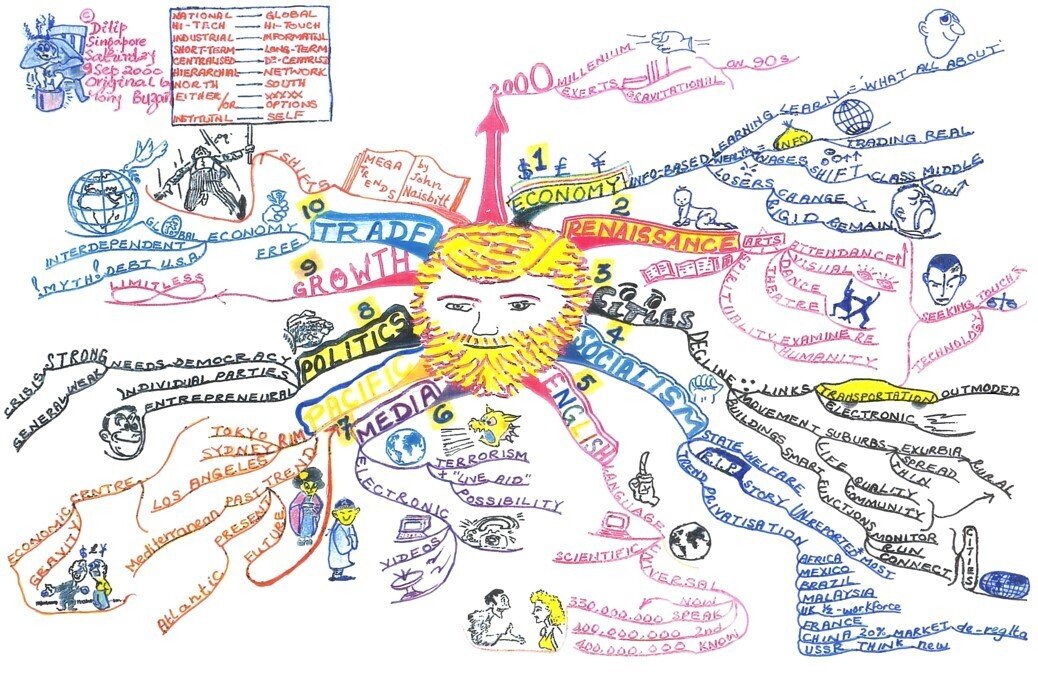 © Dilip
Singapore
Saturday
9 Sep 2000
Original by
Tony Buzan
NATIONAL — GLOBAL
HI-TECH — HI-TOUCH
INDUSTRIAL — INFORMATNL
SHORT-TERM — LONG-TERM
CENTRALISED — DE-CENTRLSD
HIERARCHAL — NETWORK
NORTH — SOUTH
EITHER/OR — XXXXX OPTIONS
INSTITUTNL — SELF
SHIFTS
MEGA TRENDS
by John Naisbitt
2000
MILLENIUM
EXERTS
GRAVITATIONAL
ON 90s
$ £ ¥
1
ECONOMY
INFO-BASED
LEARNING
LEARN =
"WHAT ALL ABOUT"
WEALTH =
INFO
TRADING REAL
WAGES
SHIFT
CLASS MIDDLE
LOSERS
LOW
CHANGE X
RIGID REMAIN
2
RENAISSANCE
ARTS
ATTENDANCE
VISUAL
DANCE
THEATRE
SPIRITUALITY
EXAMINE RE
HUMANITY
SEEKING TOUCH
TECHNOLOGY
3
CITIES
DECLINE
LINKS
TRANSPORTATION
OUTMODED
ELECTRONIC
MOVEMENT
SUBURBS
EXURBIA
RURAL
SPREAD
THIN
LIFE
QUALITY
COMMUNITY
BUILDINGS
SMART
FUNCTIONS
MONITOR
RUN
CONNECT
CITIES
4
SOCIALISM
STATE WELFARE
R.I.P
STORY UNREPORTED MOST
TREND PRIVATISATION
AFRICA
MEXICO
BRAZIL
MALAYSIA
UK ½-workforce
FRANCE
CHINA 20% MARKET
USSR THINK new
5
ENGLISH
LANGUAGE
SCIENTIFIC
UNIVERSAL
NOW
330,000,000 SPEAK
400,000,000 2nd
400,000,000 KNOW
6
MEDIA
TERRORISM
+ "LIVE AID"
POSSIBILITY
ELECTRONIC
VIDEOS
7
PACIFIC
RIM
TOKYO
SYDNEY
LOS ANGELES
CENTRE
ECONOMIC
GRAVITY
$ £ ¥
TREND
PAST
Mediterranean
PRESENT
Atlantic
FUTURE
8
POLITICS
NEEDS DEMOCRACY
STRONG
CRISIS
WEAK
GENERAL
INDIVIDUAL PARTIES
ENTREPRENEURAL
9
GROWTH
LIMITLESS
10
TRADE
ECONOMY
GLOBAL
INTERDEPENDENT
FREE
DEBT U.S.A
!MYTH!